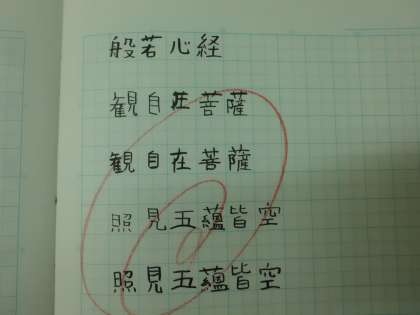 般若心経
観自在菩薩
観自在菩薩
照見五蘊皆空
照見五蘊皆空